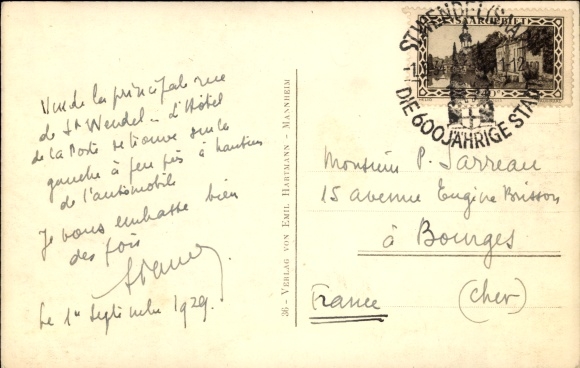 Vue de la principale rue
de St Wendel - L'Hôtel
de la Poste se trouve sur la
gauche à peu près à hauteur
de l'automobile
Je vous embrasse bien
des fois
Le 1er Septembre 1929.
36 - VERLAG VON EMIL HARTMANN - MANNHEIM
SAARGEBIET
ST. WENDEL (SAAR)
DIE 600 JÄHRIGE STADT
Monsieur P. Sarreau
15 avenue Eugène Brisson
à Bourges
(Cher)
France